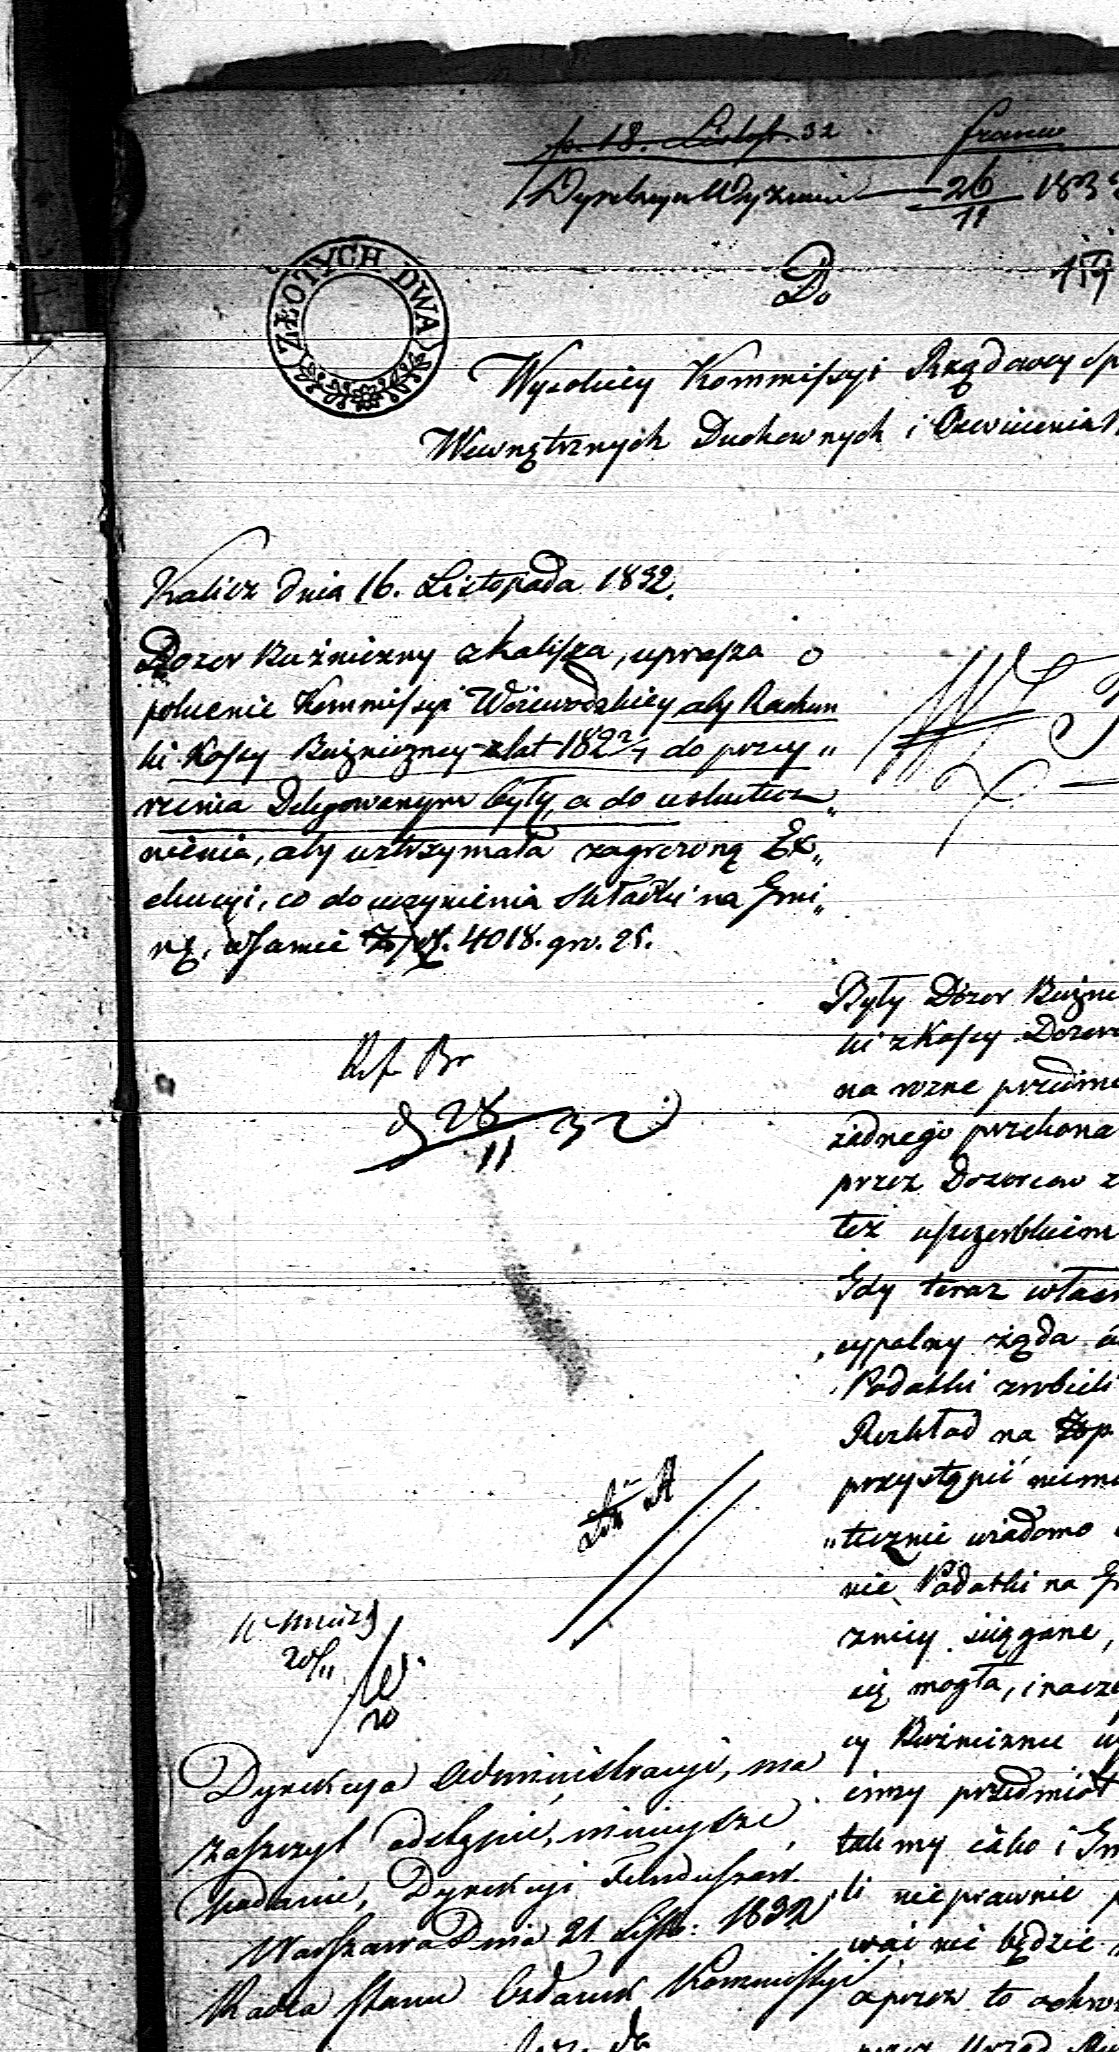 p. 18. Listop. 32 franco
Dyrekcya Wyznań 26/11 183
Do
ZŁOTYCH DWA
Wysokiey Kommissyi Rządowey Sp
Wewnętrznych Duchownych i Oświecenia
Kalisz dnia 16. Listopada 1832.
Dozor Bużniczny z Kalisza, uprasza o
polecenie Kommissyi Woiewodzkiey aby Rachun
ki Kassy Bużniczney z lat 182 2/7 do przey„
rzenia Delegowanym były, a do uskutecz„
nienia, aby wstrzymała zagrozoną Ex„
ekucyi, co do uczynienia składki na Gmi„
nę, w summie Zł. 4018. gr. 25.
Ref Br
d 28/11 32
Były Dozor Bużni
ki z Kassy Dozoru
na rozne przedmi
żadnego przekona
przez Dozorcow z
też uszczerbkiem
Gdy teraz własn
cypalny żąda a
Podatki zrobili
Rozkład na Złp.
przystąpić niemo
„tecznie wiadomo
nie Podatki na G
zniey siągane,
cię mogła, inacze
cy Bużniczne w
cimy przedmiot
tak my iako i Gm
li nieprawnie p
wać nie będzie
a przez to ochro
przez Urząd Mu
Litt A
20/„
Dyrekcya Administracyi, ma
zaszczyt odstąpić, ninieysze
podanie, Dyrekcyi Funduszow.
Warszawa Dnia 21 Listo: 1832
Radca Stanu Członek Kommissyi